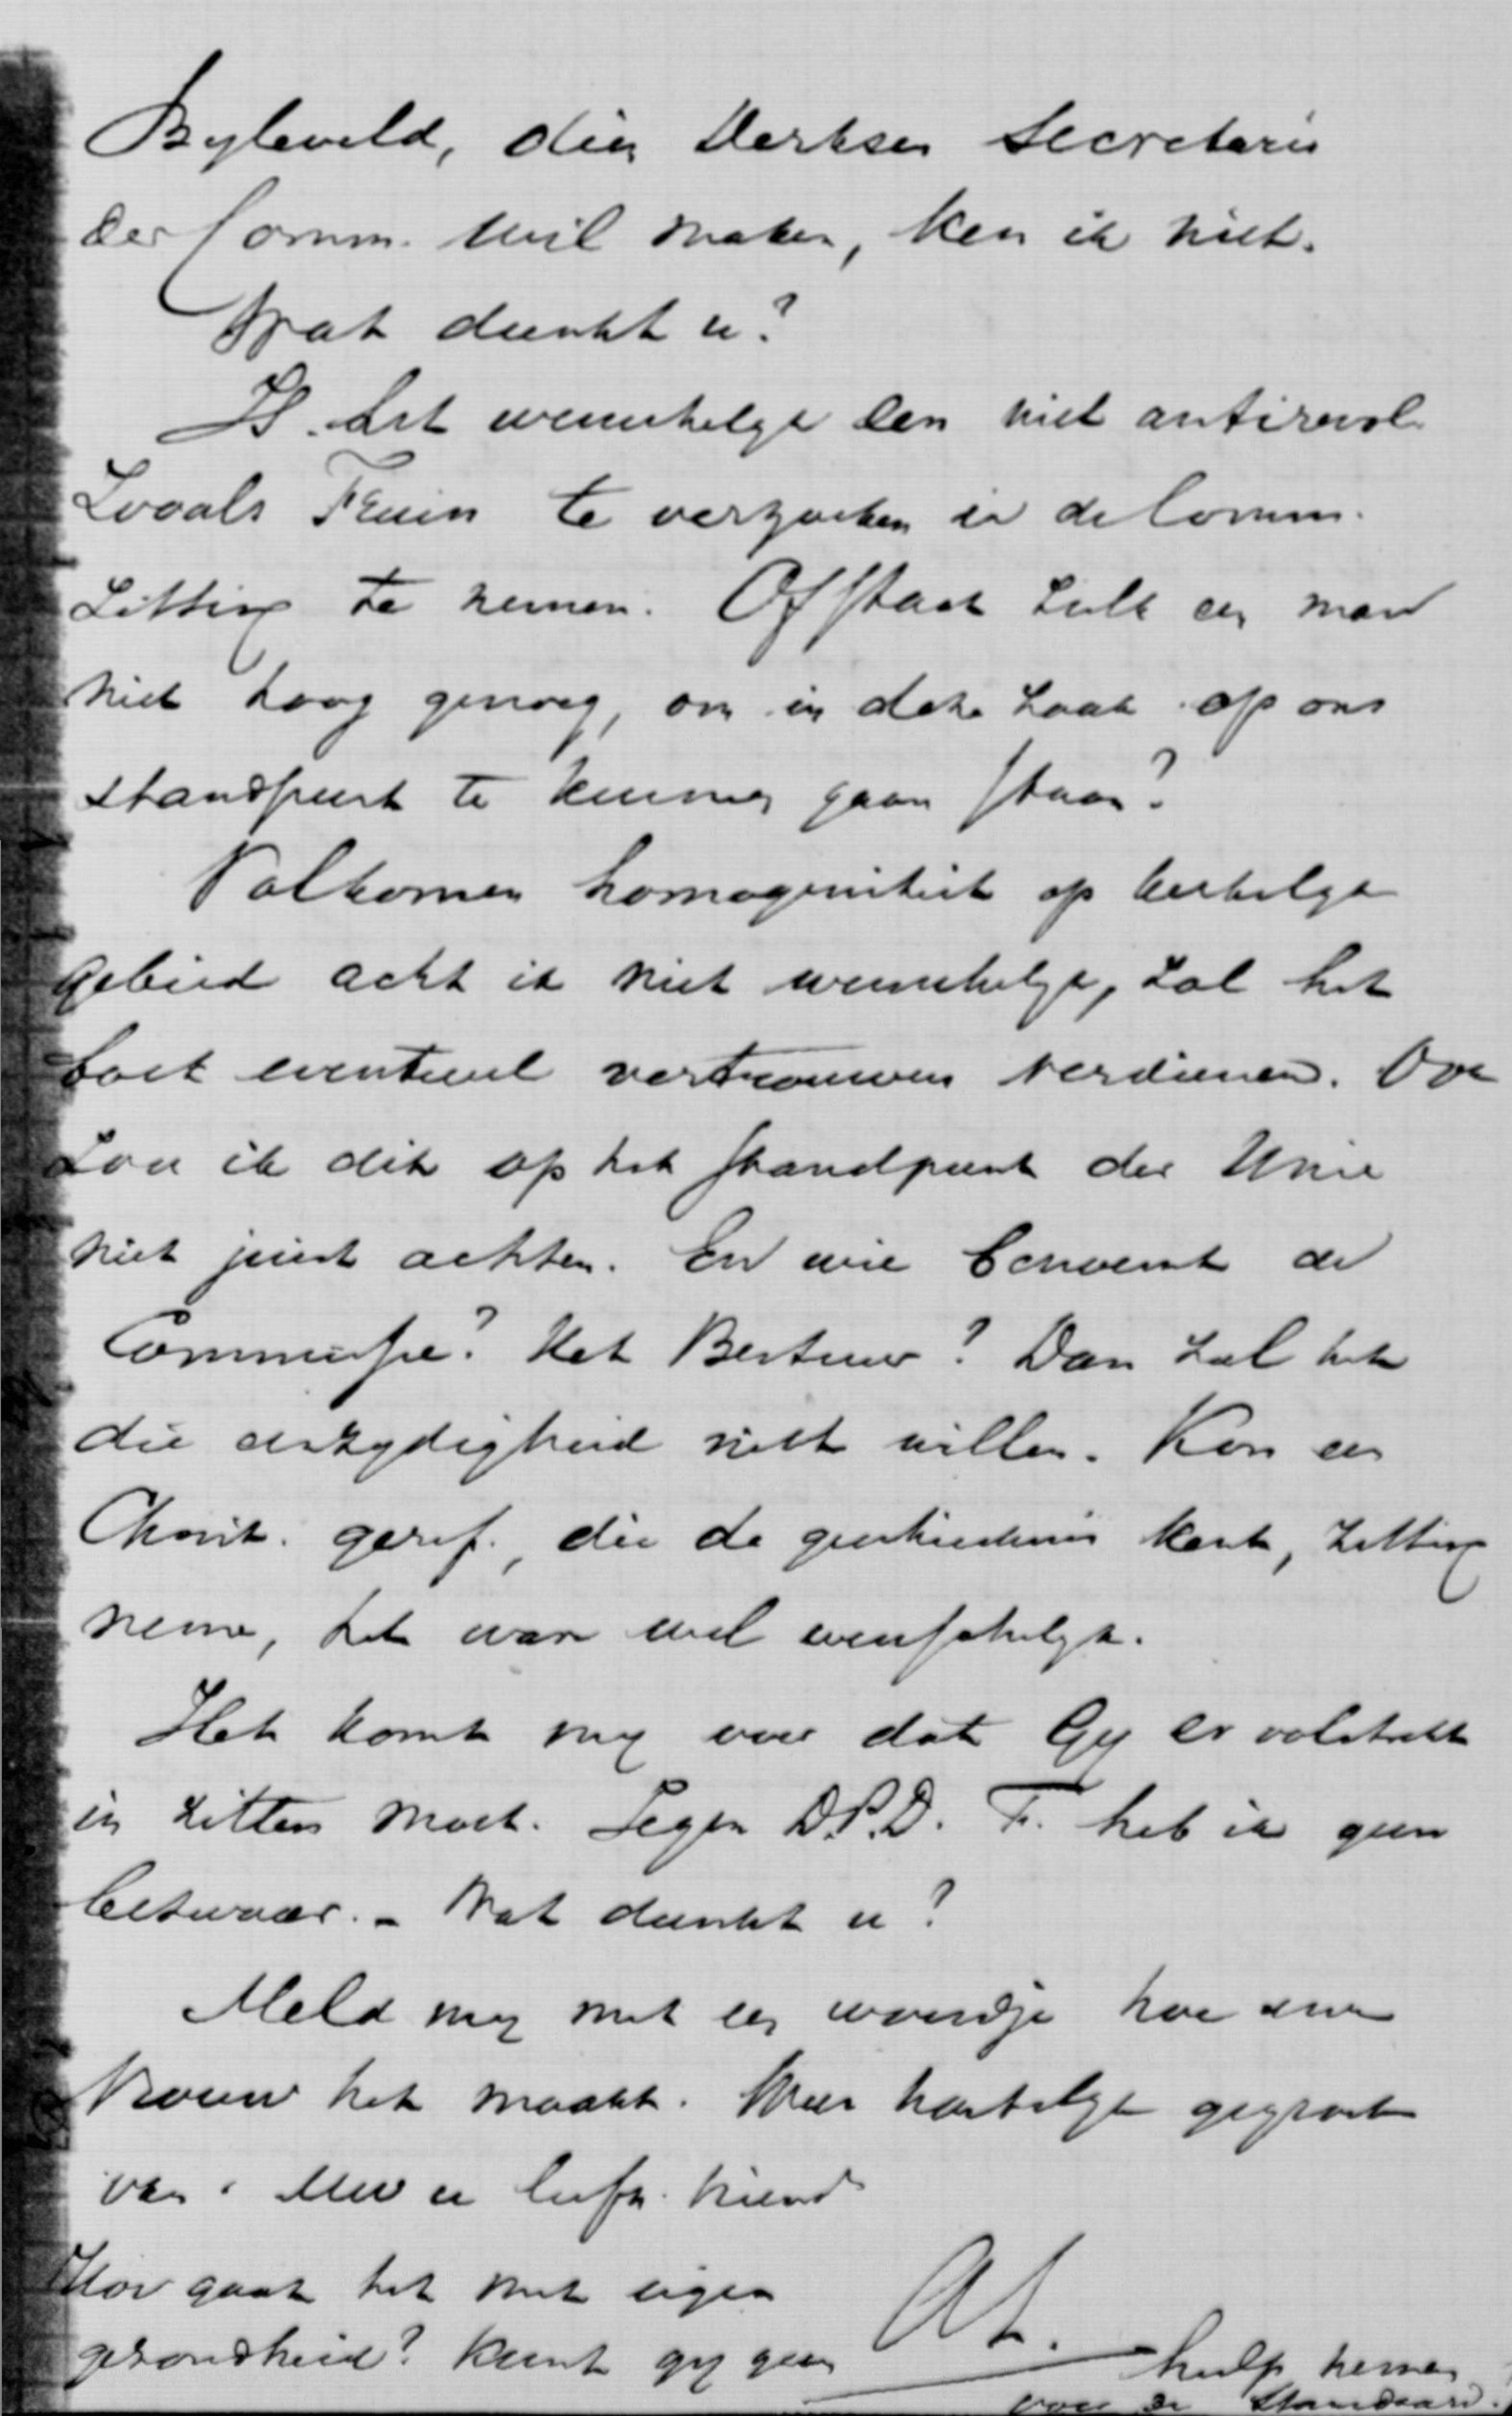 Byleveld, dien Derksen Secretaris
der Comm. wil maken, ken ik niet.
Wat dunkt u?
Is het wenschelyk een niet antirevol.
zooals Fruin te verzoeken in de Comm.
zitting te nemen. Of staat zulk een man
niet hoog genoeg, om in deze zaak op ons
standpunt te kunnen gaan staan?
Volkomen homogeniteit op kerkelyk
gebied acht ik niet wenschelyk, zal het
boek eventueel vertrouwen verdienen. Ook
zou ik dit op het standpunt der Unie
niet juist achten. En wie benoemt de
Commissie? Het Bestuur? Dan zal het
die eenzydigheid niet willen. Kon een
Christ. geref., die de geschiedenis kent, zitting
nemen, het ware wel wenschelyk.
Het komt my voor dat Gy er volstrekt
in zitten moet. Tegen D.P.D. F. heb ik geen
bezwaar. - Wat dunkt u?
Meld my met een woordje hoe uwe
Vrouw het maakt. Wees hartelyk gegroet
van Uw u liefh. vriend
Hoe gaat het met eigen
gezondheid? Kunt gy geen
hulp nemen
voor de Standaard.